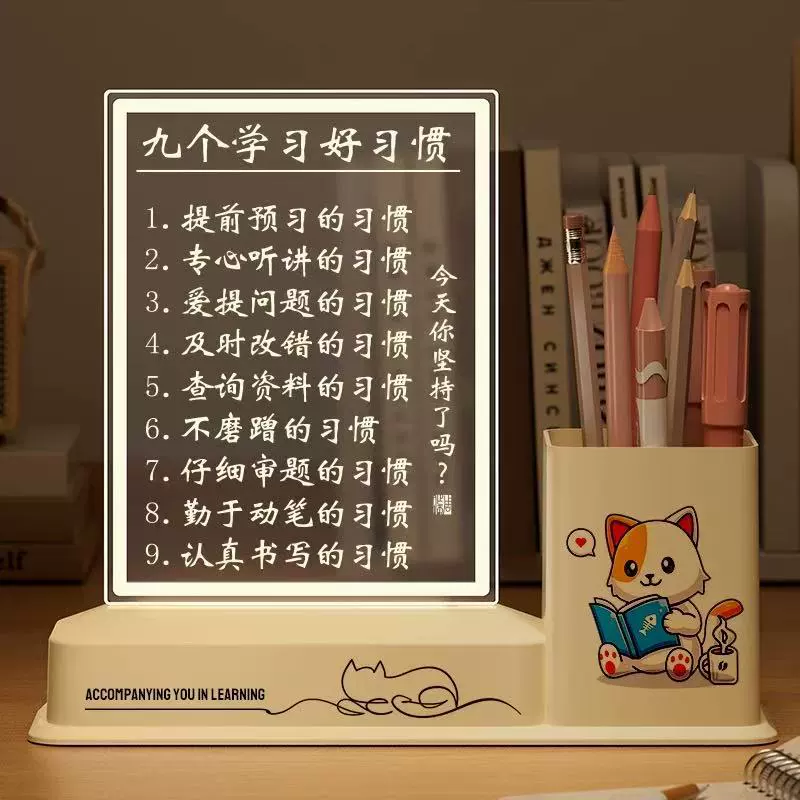 九个学习好习惯
1. 提前预习的习惯
2. 专心听讲的习惯
3. 爱提问题的习惯
4. 及时改错的习惯
5. 查询资料的习惯
6. 不磨蹭的习惯
7. 仔细审题的习惯
8. 勤于动笔的习惯
9. 认真书写的习惯
今天你坚持了吗？
ACCOMPANYING YOU IN LEARNING
ДЖЕН СИНСЕ